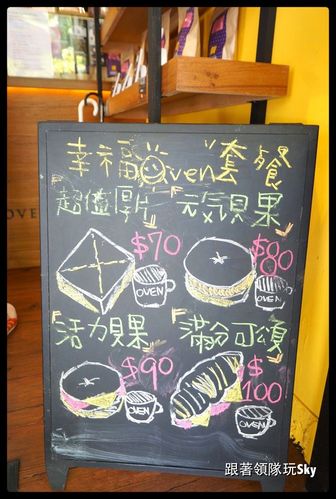 幸福Oven套餐
「超值厚片」
$70
OVEN
「元気貝果」
$80
OVEN
「活力貝果」
$90
OVEN
「滿分可頌」
$100
OVEN
OVEN
跟著領隊玩Sky